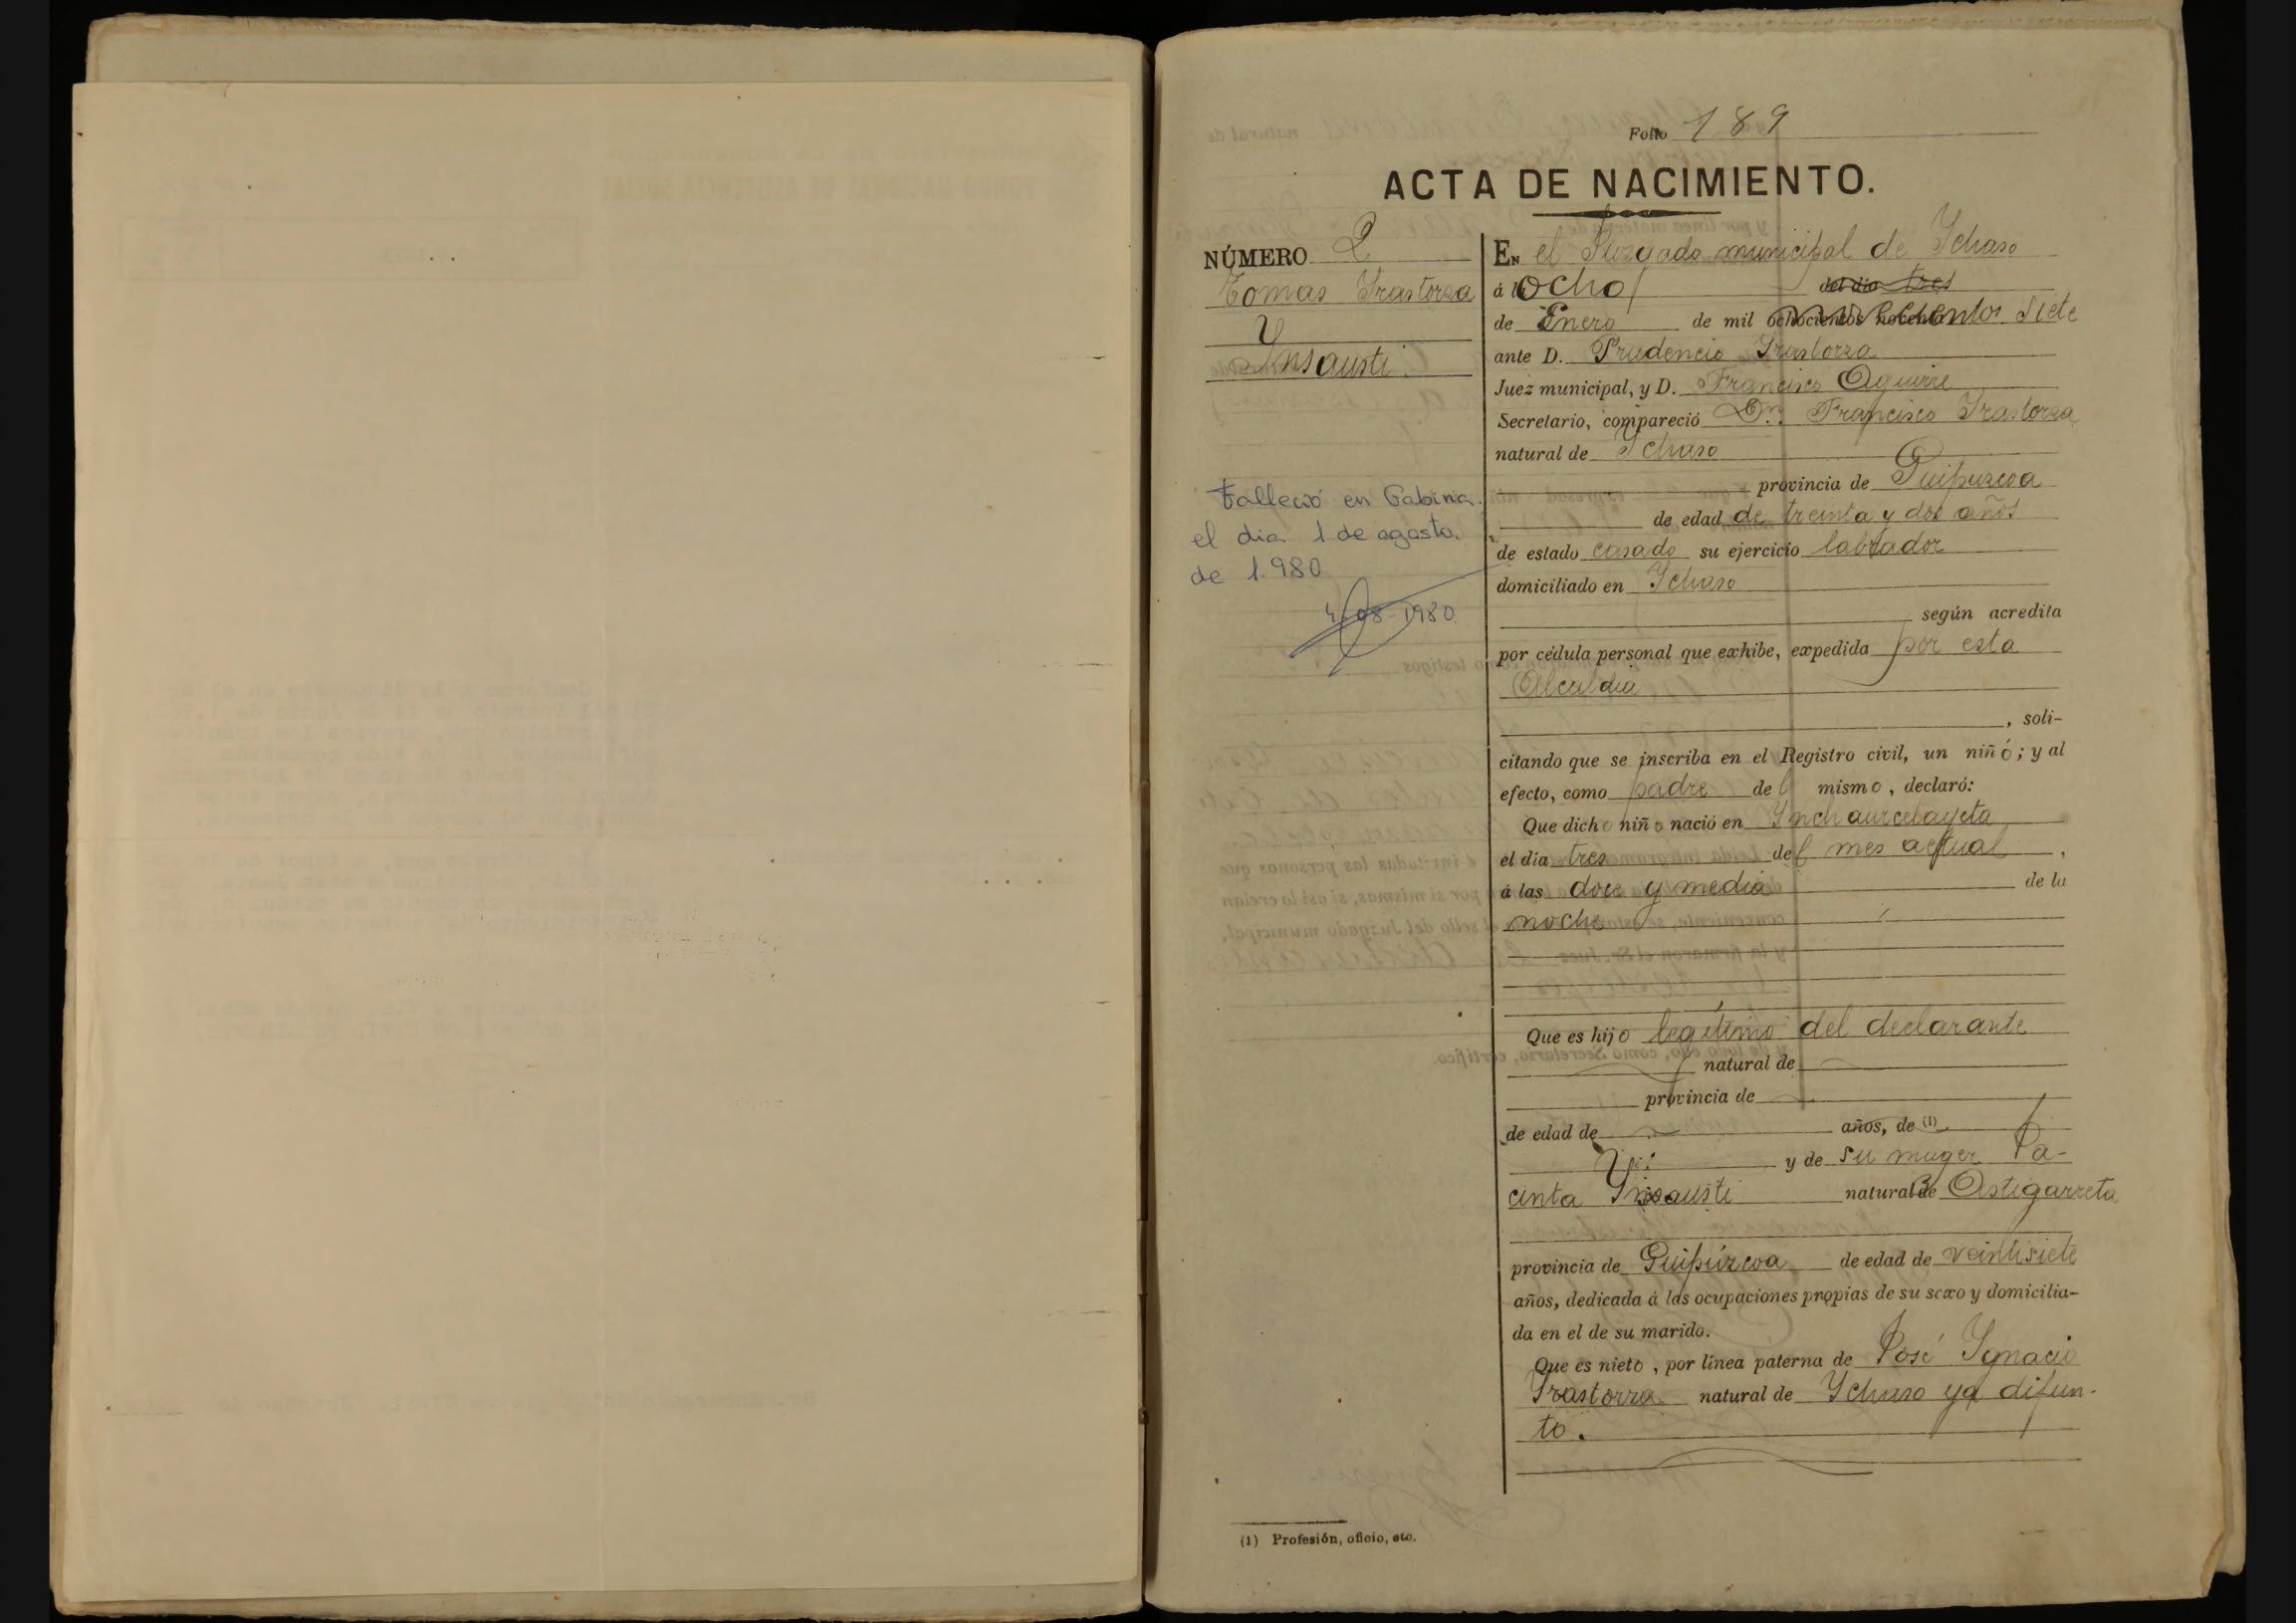 Folio 189
ACTA DE NACIMIENTO.
NÚMERO 2
Tomas Yrastorza
Y
Insausti
Falleció en Gabiria
el dia 1 de agosto.
de 1.980
4-08-1980
EN el Juzgado municipal de Ychaso
á la ocho del dia tres
de Enero de mil ochocientos novecientos siete
ante D. Prudencio Yrastorza
Juez municipal, y D. Francisco Aguirre
Secretario, compareció Dn. Francisco Yrastorza
natural de Ychaso
provincia de Guipuzcoa
de edad de treinta y dos años
de estado casado su ejercicio labrador
domiciliado en Ychaso
según acredita
por cédula personal que exhibe, expedida por esta
Alcaldia
, soli-
citando que se inscriba en el Registro civil, un niño; y al
efecto, como padre del mismo, declaró:
Que dicho niño nació en Ynchaurcelayeta
el dia tres del mes actual,
á las doce y media de la
noche
Que es hijo legítimo del declarante
natural de
provincia de
de edad de años, de (1)
y de su muger Ja-
cinta Ynsausti natural de Astigarreta
provincia de Guipúzcoa de edad de veintisiete
años, dedicada á las ocupaciones propias de su sexo y domicilia-
da en el de su marido.
Que es nieto, por línea paterna de José Ygnacio
Yrastorza natural de Ychaso ya difun-
to.
(1) Profesión, oficio, etc.